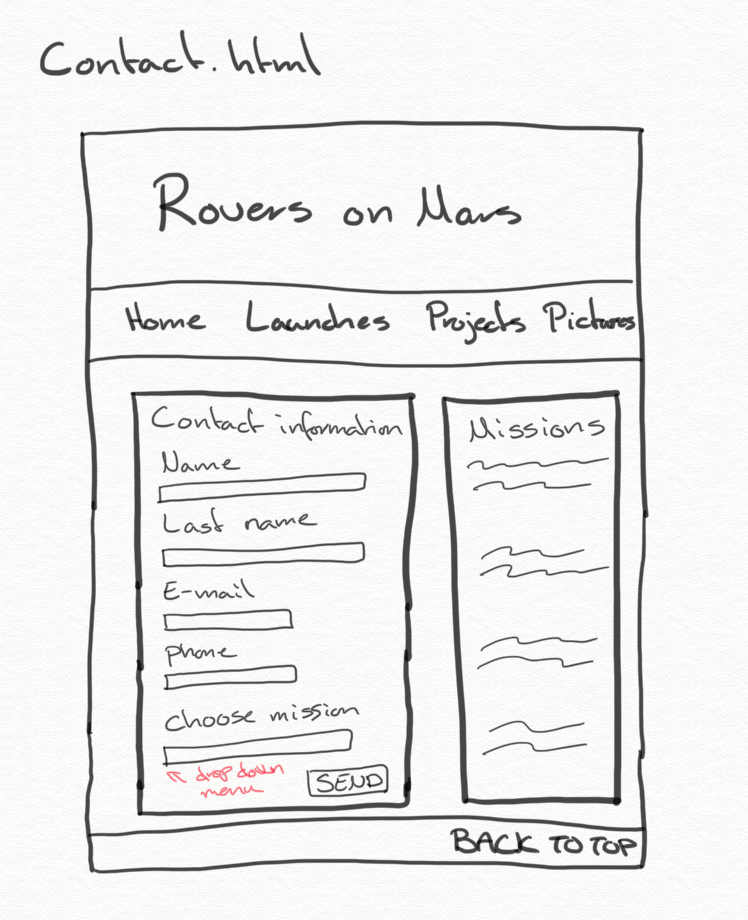 Contact.html
Rovers on Mars
Home Launches Projects Pictures
Contact information
Name
Last name
E-mail
phone
choose mission
drop down
menu
SEND
Missions
BACK TO TOP